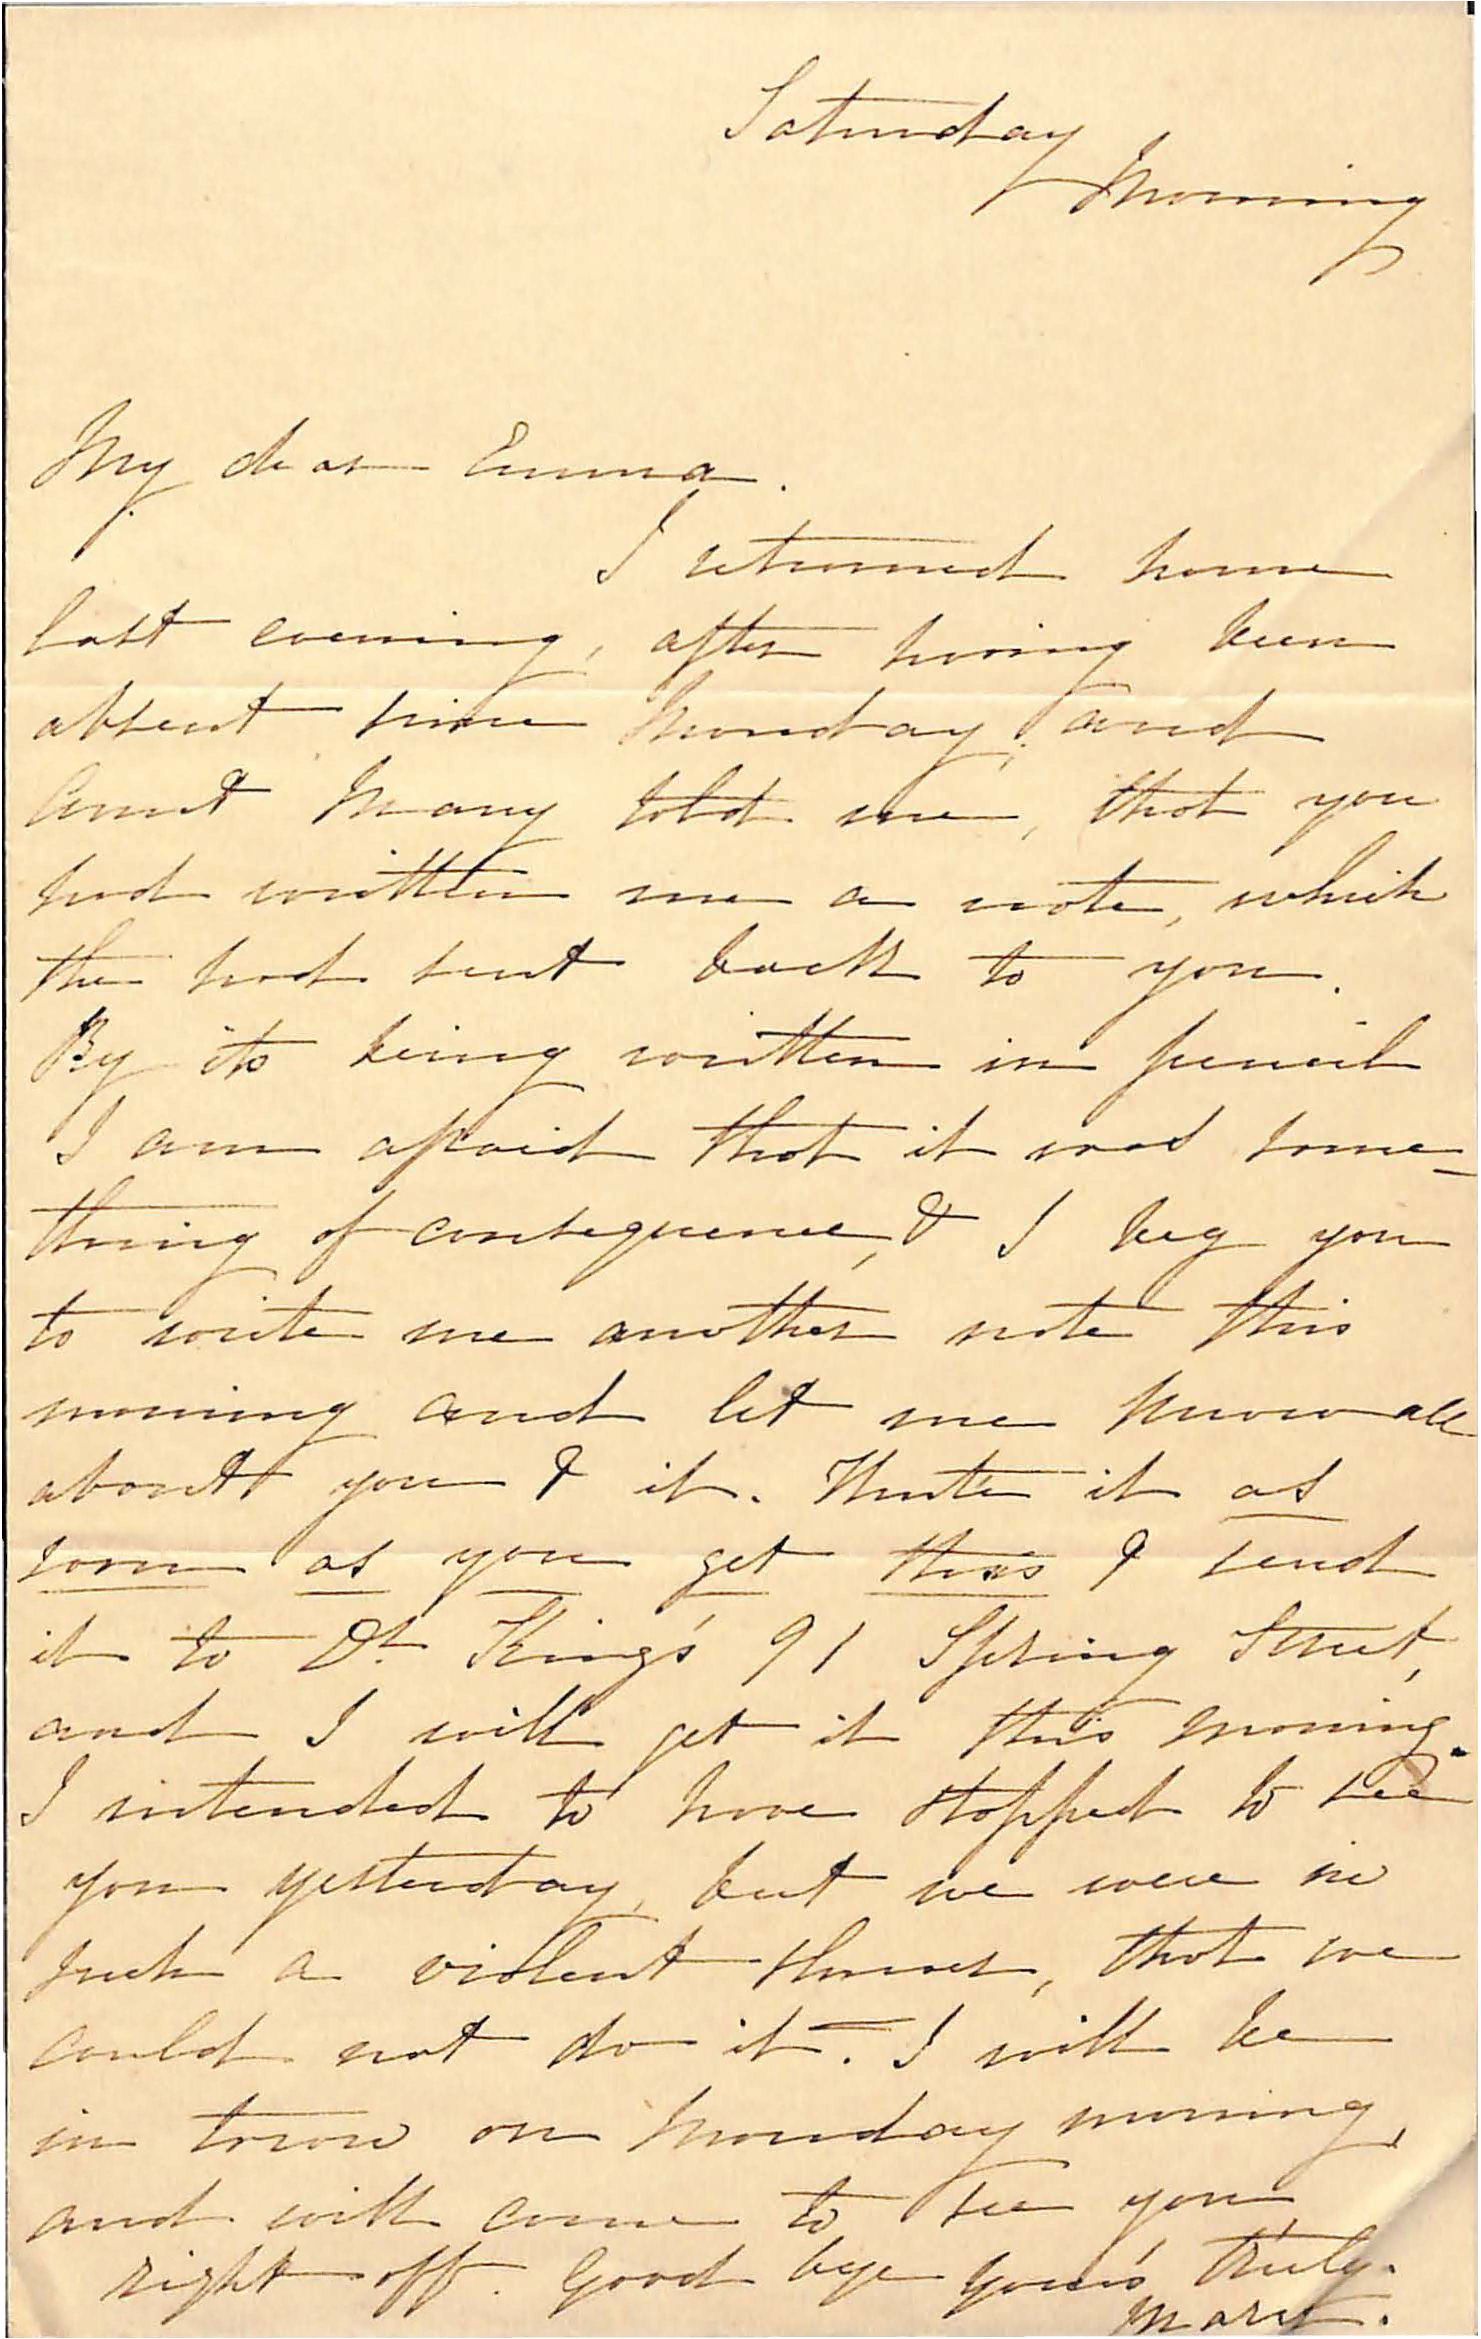 Saturday
Morning
My dear Emma.
I returned home
last evening, after having been
absent since Monday, and
Aunt Mary told me, that you
had written me a note, which
she had sent back to you.
By its being written in pencil
I am afraid that it was some-
thing of consequence, & I beg you
to write me another note this
morning and let me know all
about you & it. Write it as
soon as you get this & send
it to Dr. King's 91 Spring Street,
and I will get it this morning.
I intended to have stopped to see
you yesterday, but we were in
such a violent shower, that we
could not do it. I will be
in town on Monday morning,
and will come to see you
right off. Good bye Your's truly.
Mary.